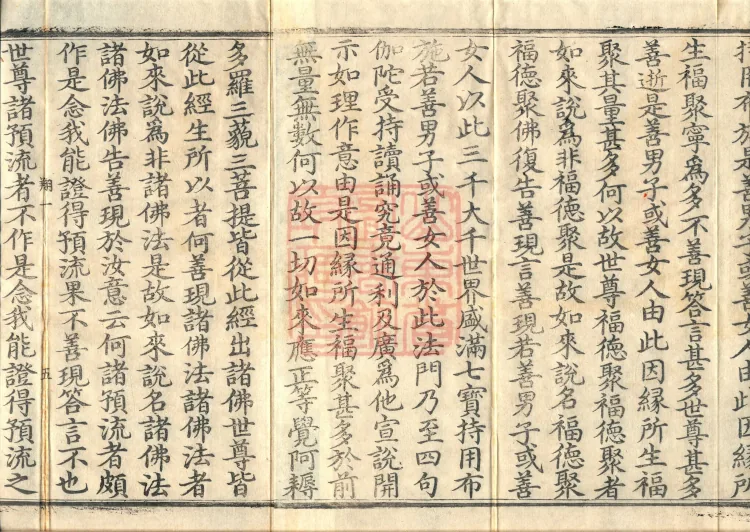 善女人由此因緣所
生福聚寧爲多不善現答言甚多世尊甚多
善逝是善男子或善女人由此因緣所生福
聚其量甚多何以故世尊福德聚福德聚者
如來說爲非福德聚是故如來說名福德聚
福德聚佛復告善現言善現若善男子或善
女人以此三千大千世界盛滿七寶持用布
施若善男子或善女人於此法門乃至四句
伽陀受持讀誦究竟通利及廣爲他宣說開
示如理作意由是因緣所生福聚甚多於前
無量無數何以故一切如來應正等覺阿耨
多羅三藐三菩提皆從此經出諸佛世尊皆
從此經生所以者何善現諸佛法諸佛法者
如來說爲非諸佛法是故如來說名諸佛法
諸佛法佛告善現於汝意云何諸預流者頗
作是念我能證得預流果不善現答言不也
翔一 五
世尊諸預流者不作是念我能證得預流之